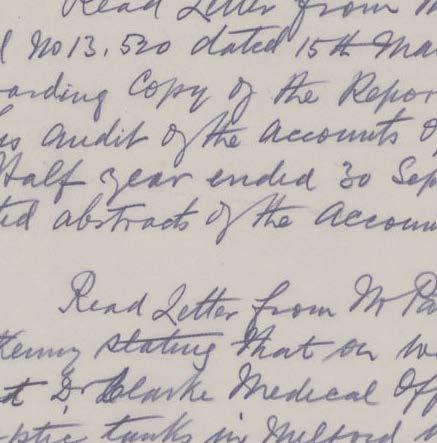 Read Letter from M
d No 13,520 dated 15th Ma
arding Copy of the Repor
is audit of the accounts o
Half year ended 30 Sep
ted abstracts of the Accoun
Read Letter from Mr Pa
Kenny stating that on we
t Dr Clarke Medical Off
ptic tanks in Melford